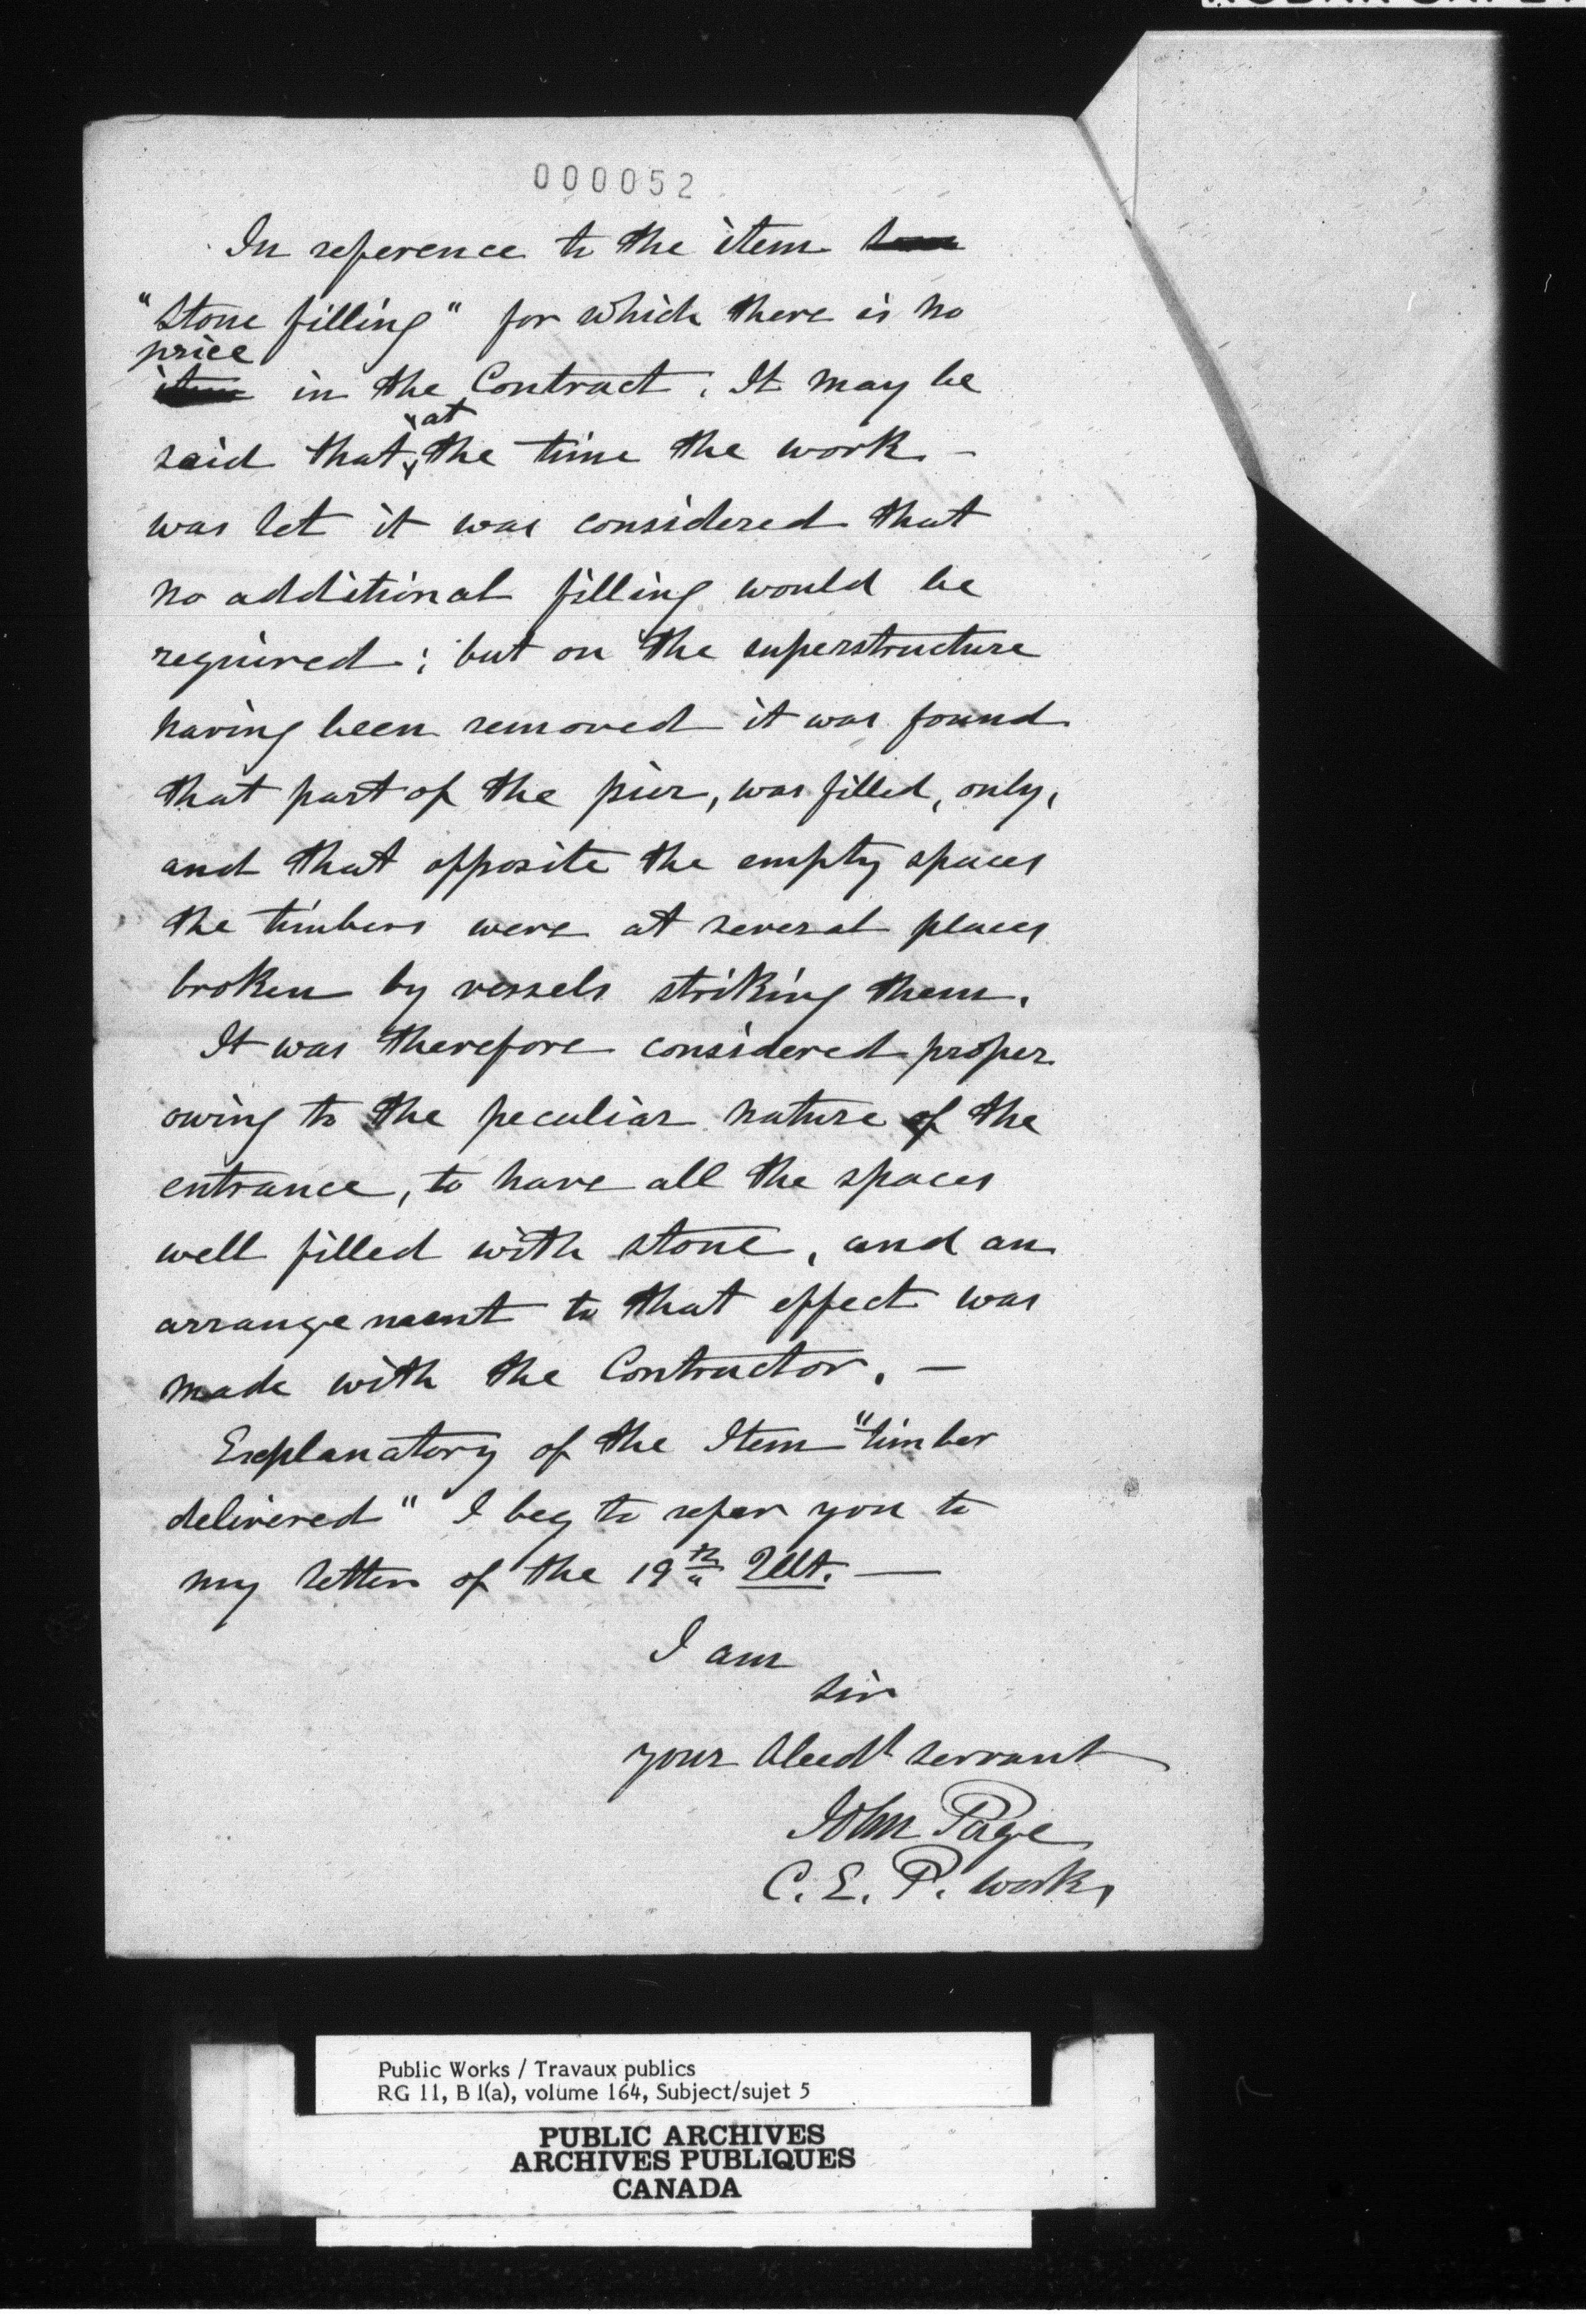 000052
In reference to the item
"stone filling" for which there is no
price
item in the Contract. It may be
at
said that the time the work –
was let it was considered that
no additional filling would be
required; but on the superstructure
having been removed it was found
that part of the pier, was filled, only,
and that opposite the empty spaces
the timbers were at several places
broken by vessels striking them.
It was therefore considered proper
owing to the peculiar nature of the
entrance, to have all the spaces
well filled with stone, and an
arrangement to that effect was
made with the Contractor. –
Explanatory of the Item "timber
delivered" I beg to refer you to
my letter of the 19th Ult. —
I am
Sir
your Obedt servant
John Page
C. E. P. Works
Public Works / Travaux publics
RG 11, B 1(a), volume 164, Subject/sujet 5
PUBLIC ARCHIVES
ARCHIVES PUBLIQUES
CANADA